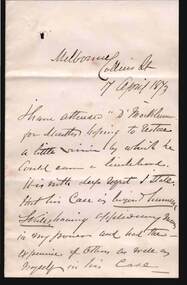 Melbourne
Collins St
17 April 1873
I have attended Dr
for Months hoping to restore
a little vision by which he
could earn a livelihood.
It is with deep regret I state
that his case is beyond human
having applied every means
in my power and had the
experience of others as well as
myself in his case